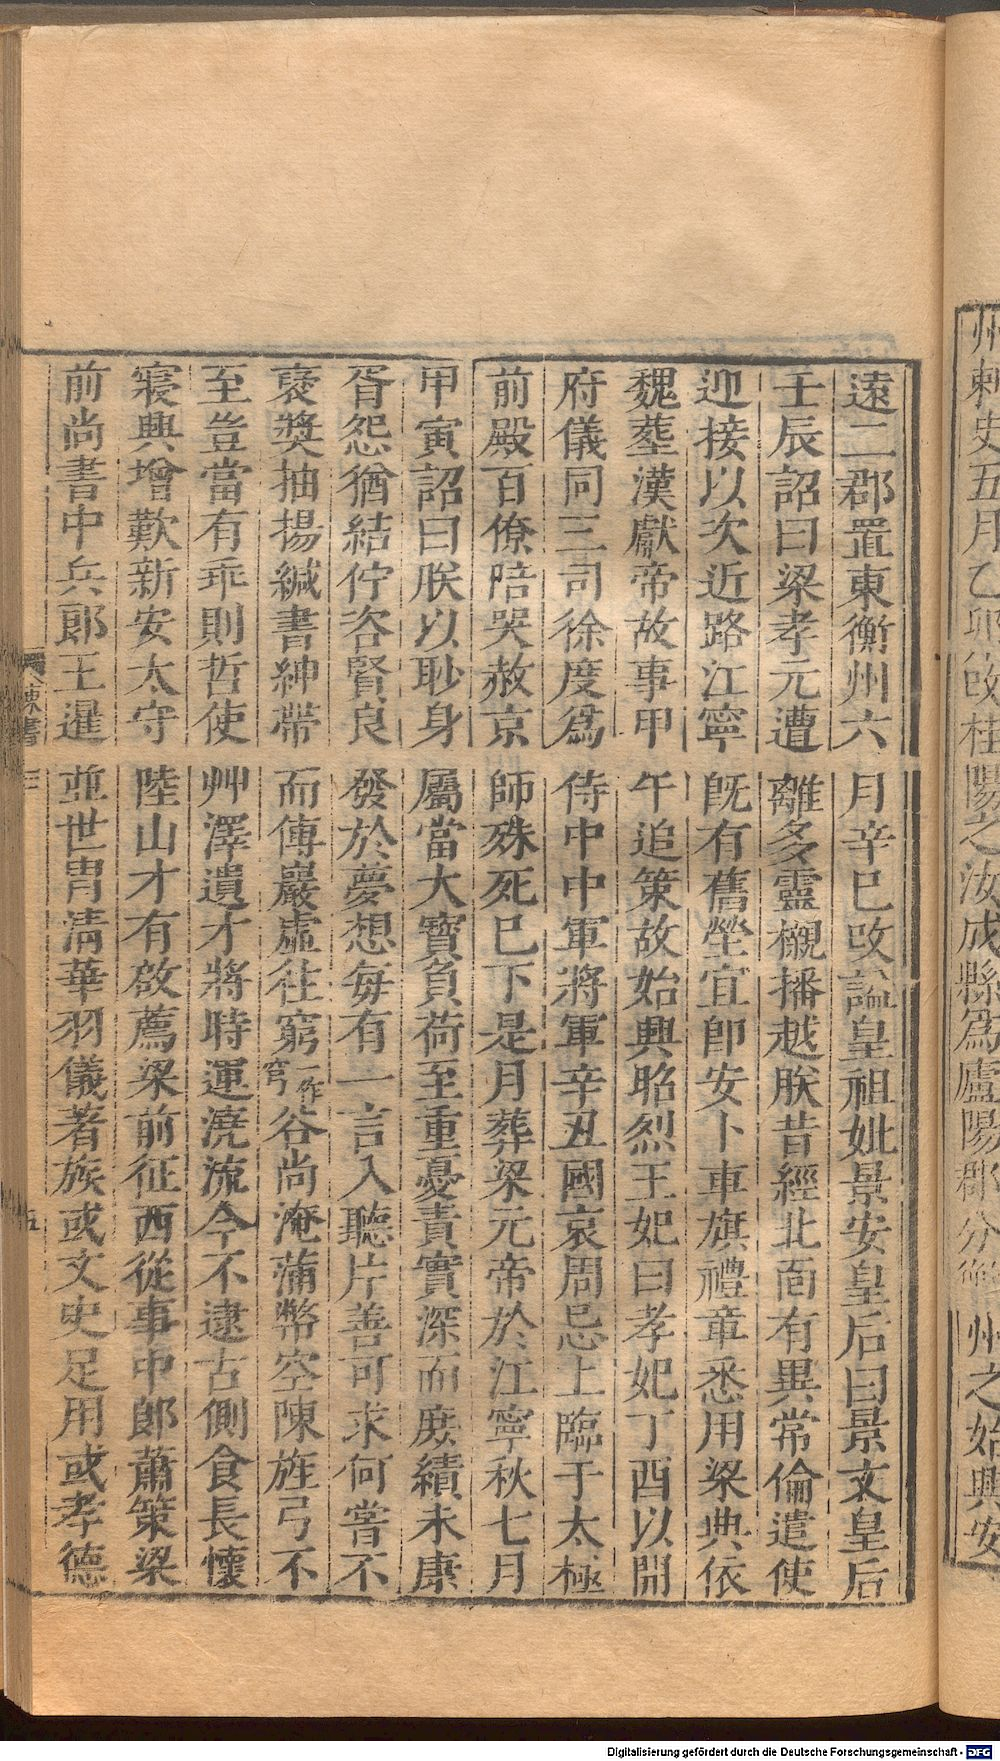 州刺史五月乙卯改桂陽之汝成縣爲廬陽郡分衡州之始興安
遠二郡置東衡州六月辛巳改諡皇祖妣景安皇后曰景文皇后
壬辰詔曰梁孝元遭離多靈櫬播越朕昔經北面有異常倫遣使
迎接以次近路江寧旣有舊塋宜卽安卜車旗禮章悉用梁典依
魏塟漢獻帝故事甲午追策故始興昭烈王妃曰孝妃丁酉以開
府儀同三司徐度爲侍中中軍將軍辛丑國哀周忌上臨于太極
前殿百僚陪哭赦京師殊死巳下是月葬梁元帝於江寧秋七月
甲寅詔曰朕以眇身屬當大寶負荷至重憂責實深而庶績未康
胥怨猶結佇咨賢良發於夢想每有一言入聽片善可求何嘗不
褒奬抽揚緘書紳帶而傅巖虛往窮一作穹谷尚淹蒲幣空陳旌弓不
至豈當有乖則哲使艸澤遺才將時運澆流今不逮古側食長懷
寢興增歎新安太守陸山才有啟薦梁前征西從事中郎蕭策梁
前尚書中兵郎王暹竝世胄淸華羽儀著族或文史足用或孝德
陳書
三
五
Digitalisierung gefördert durch die Deutsche Forschungsgemeinschaft - DFG